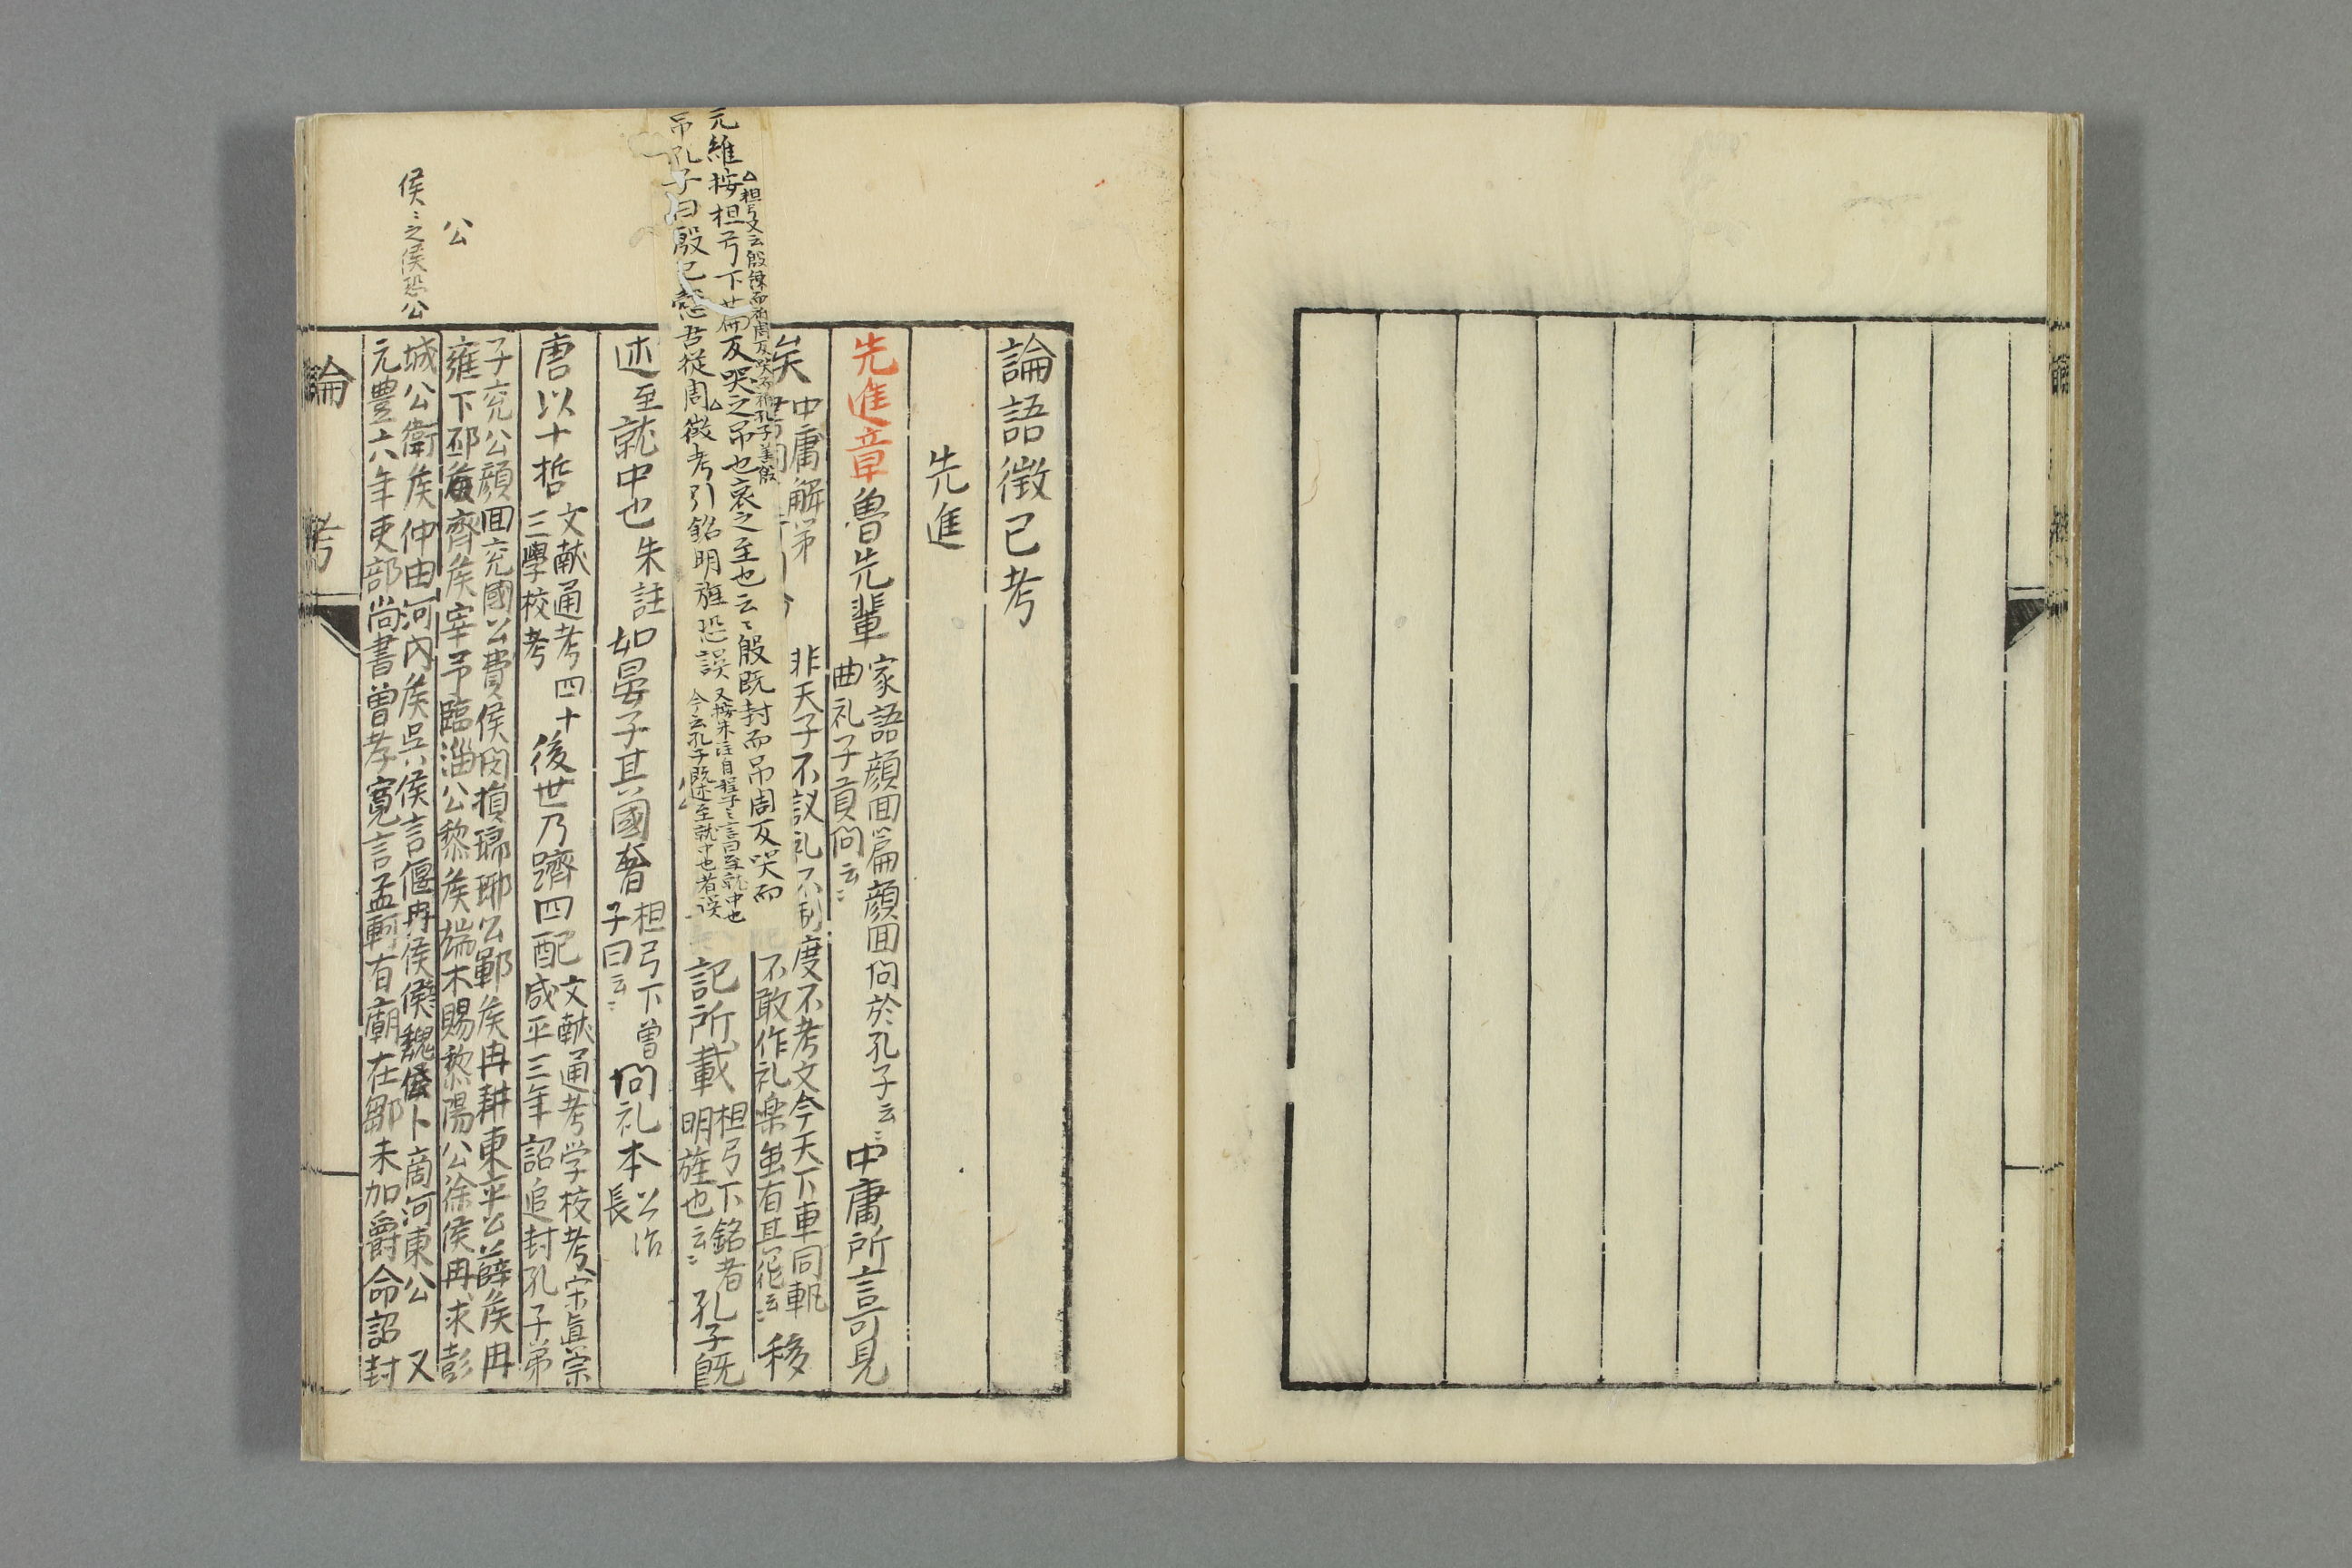 論語徴已考
先進
先進章魯先輩家語顔回篇顔回問於孔子云〻
曲礼子貢問云〻中庸所言可見
矣中庸解第
非天子不議礼不制度不考文今天下車同軌
不敢作礼楽虽有其位云〻移
記所載檀弓下銘者
明旌也云〻孔子既
述至就中也朱註如晏子其國奢檀弓下曽
子曰云〻問礼本公冶
長
唐以十哲文献通考四十
三學校考後世乃躋四配文献通考学校考宋眞宗
咸平三年詔追封孔子弟
子兖公顔回兖國公費侯閔損琅琊公鄆侯冉耕東平公薛侯冉
雍下邳公齊侯宰予臨淄公黎侯端木賜黎陽公徐侯冉求彭
城公衛侯仲由河内侯呉侯言偃丹侯魏侯卜商河東公又
元豊六年吏部尚書曽孝寛言孟軻有廟在鄒未加爵命詔封
論 考
元維按担弓下廿一葉反哭之吊也哀之至也云〻殷既封而吊周反哭而
吊孔子曰殷已慤吾從周徴考引銘明旌恐誤
又按朱注自程子之言曰至就中也
今云孔子既述至就中也者誤
公
侯〻之侯恐公